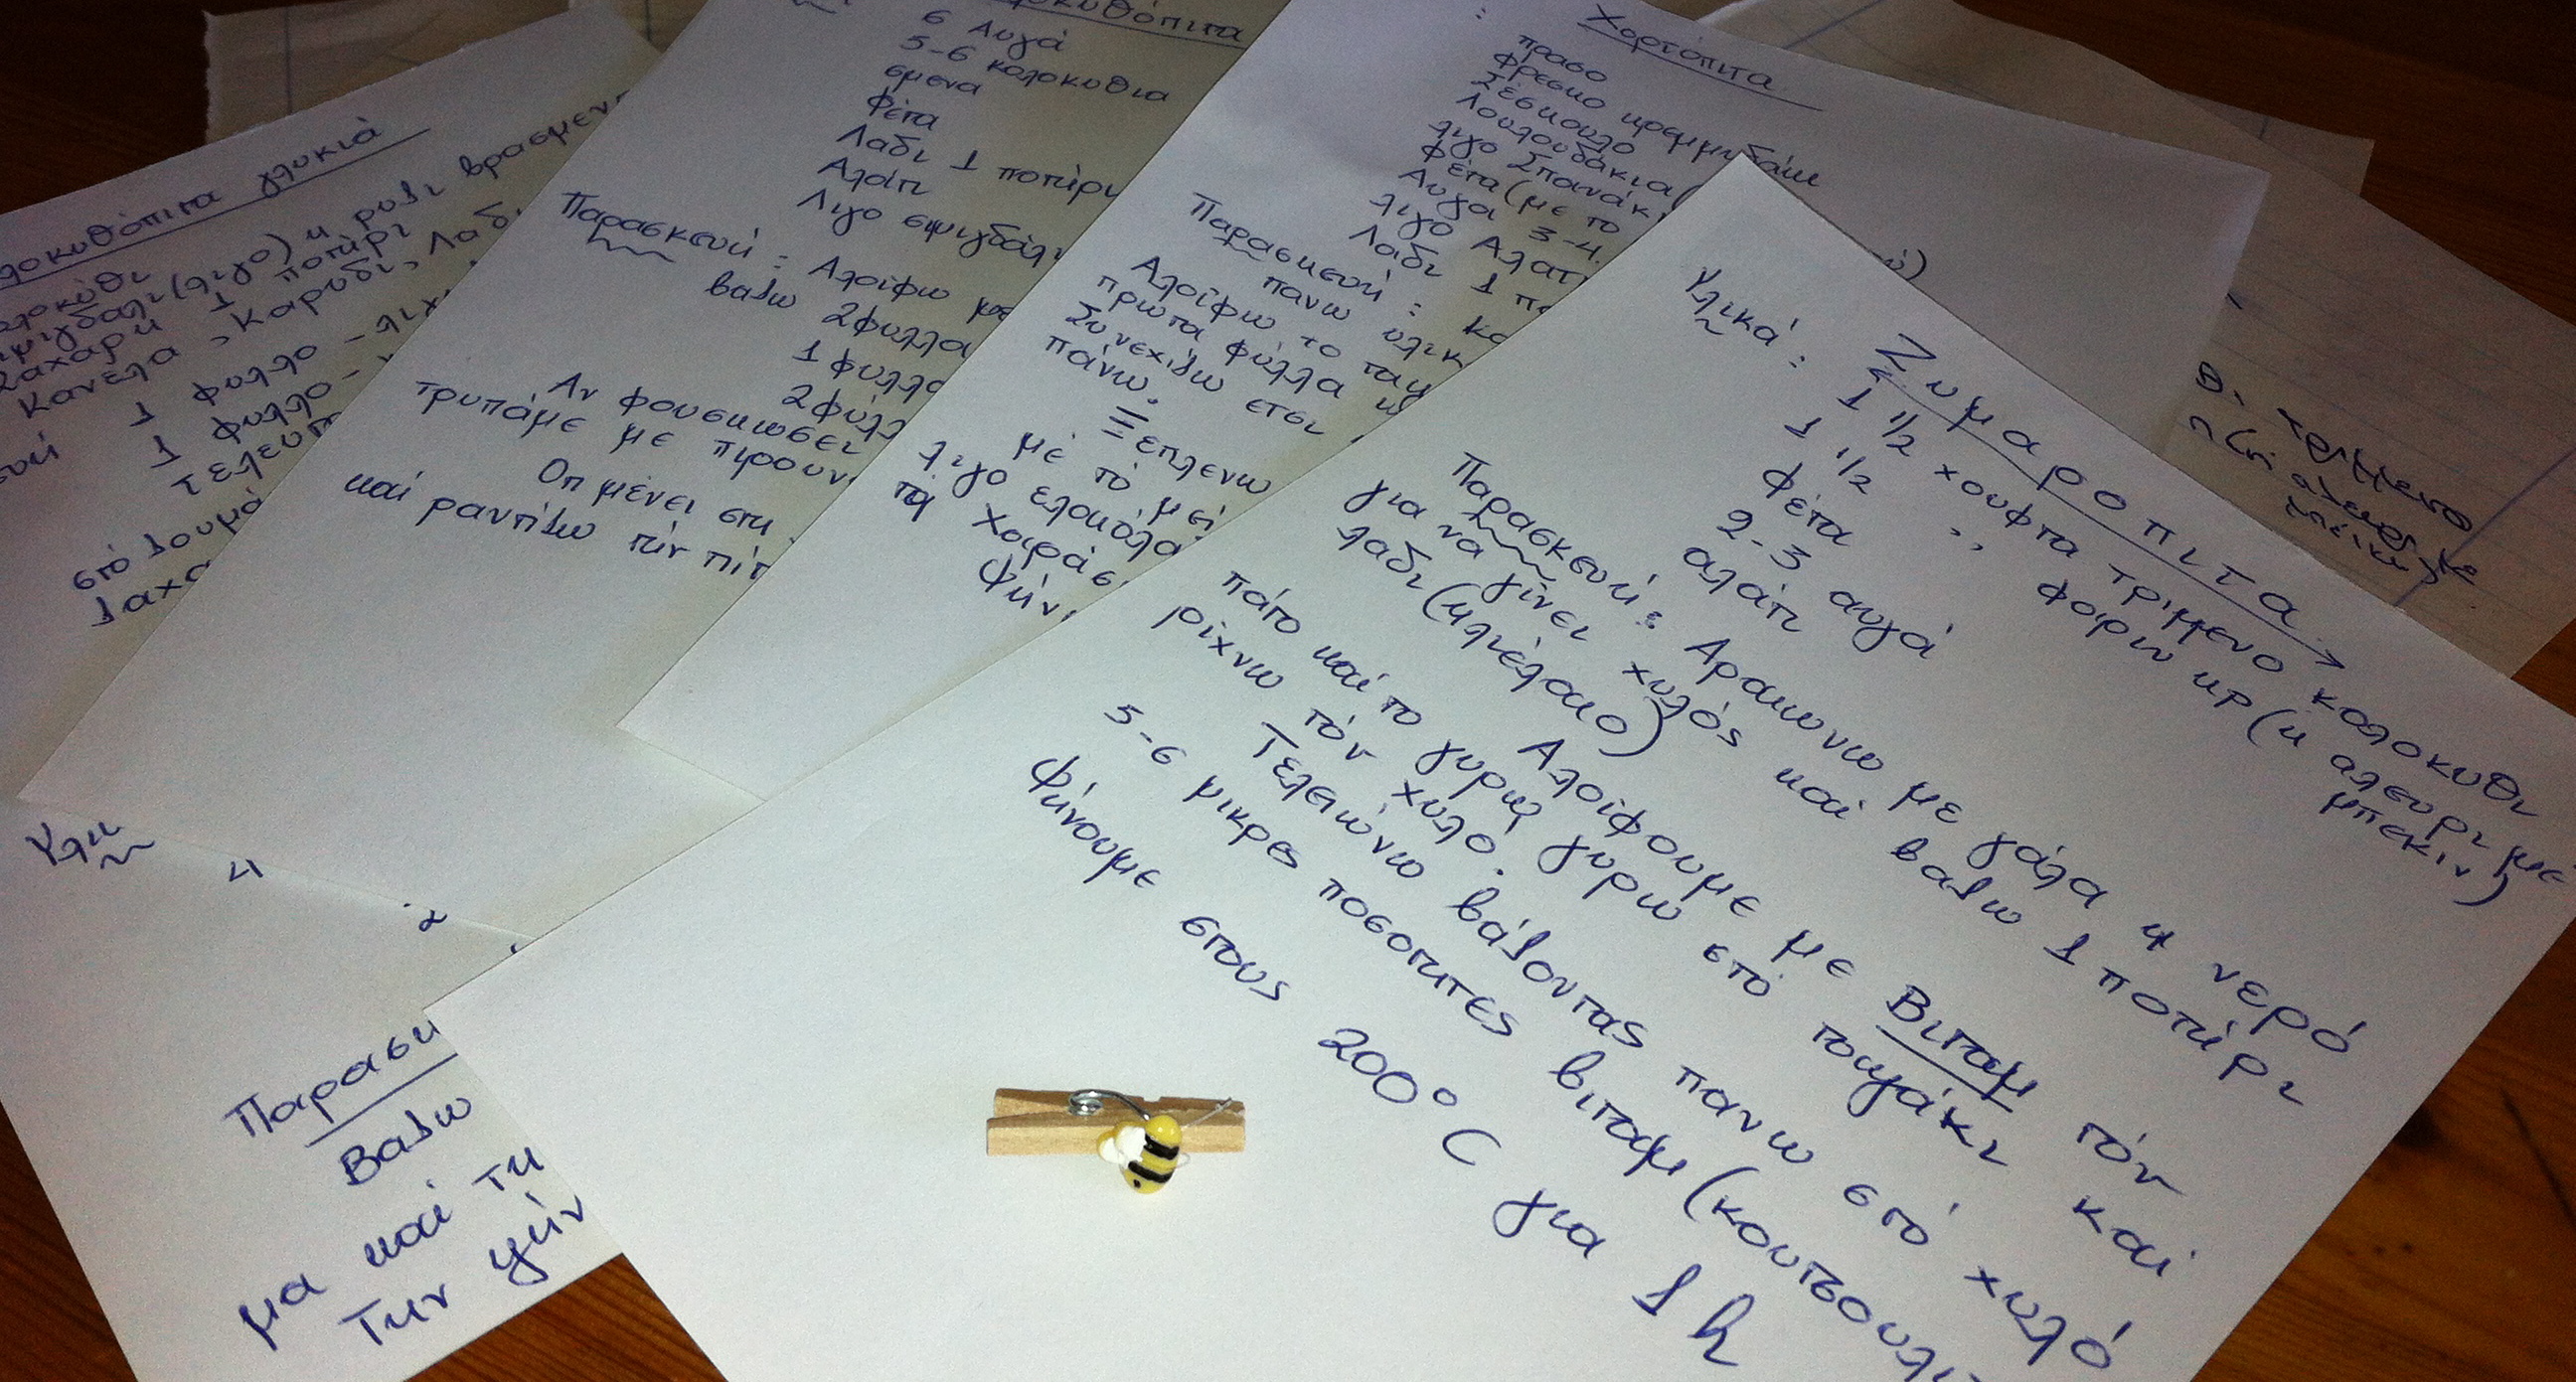 γλυκιά
(λίγο) ή ρύζι βρασμεν
1 ποτήρι
Κανέλα, Καρύδι, Λάδι
1 φυλλο - λιχ
1 φυλλο -
τελευτ
στό ζουμά
ζαχα
6 Αυγά
5-6 κολοκυθια
σμενα
Φέτα
Λαδι 1 ποτήρι
Αλάτι
Λιγο σιμιγδάλι
Παρασκευή: Αλοίφω
βαζω 2φυλλα
1 φυλλο
2φύλλ
Αν φουσκωσει
τρυπάμε με πιρουν
Οτι μένει στη
καί ραντίζω τήν πίτ
Χορτόπιτα
πρασο
Φρεσκο κρεμμυδάκι
Σέσκουλο
Λουλουδάκια (
λιγο Σπανάκ
Φέτα (με το
Αυγα 3-4
λιγο Αλατι
Λαδι 1 πο
Παρασκευή: Κο
πανω υλικ
Αλοίφω το ταψ
πρωτα φύλλα κ
Συνεχίζω ετσι
πάνω.
Ξεπλενω
με τό μεί
λιγο ελαιόλα
τή χαράσ
Ψήν
Ζυμαροπιτα
Υλικά: 1 1/2 χουφτα τριμμενο κολοκυθι
1 1/2 ,, φαριν απ (ή αλευρι με
μπεκιν)
Φέτα
2-3 αυγά
αλάτι
Παρασκευή: Αραιωνω με γάλα ή νερό
για να γίνει χυλός καί βαζω 1 ποτήρι
λαδι (ηλιέλαιο)
Αλοίφουμε με Βιταμ τόν
πάτο καί το γυρω γυρω στό ταψάκι καί
ρίχνω τόν χυλό.
Τελειώνω βάζοντας πανω στό χυλό
5-6 μικρες ποσοτητες βιταμ (κουτσουλι
Ψήνουμε στους 200° C για 1 h
Υλι
4
2
Παρασκ
Βαζω
μα καί τη
Την ψήν